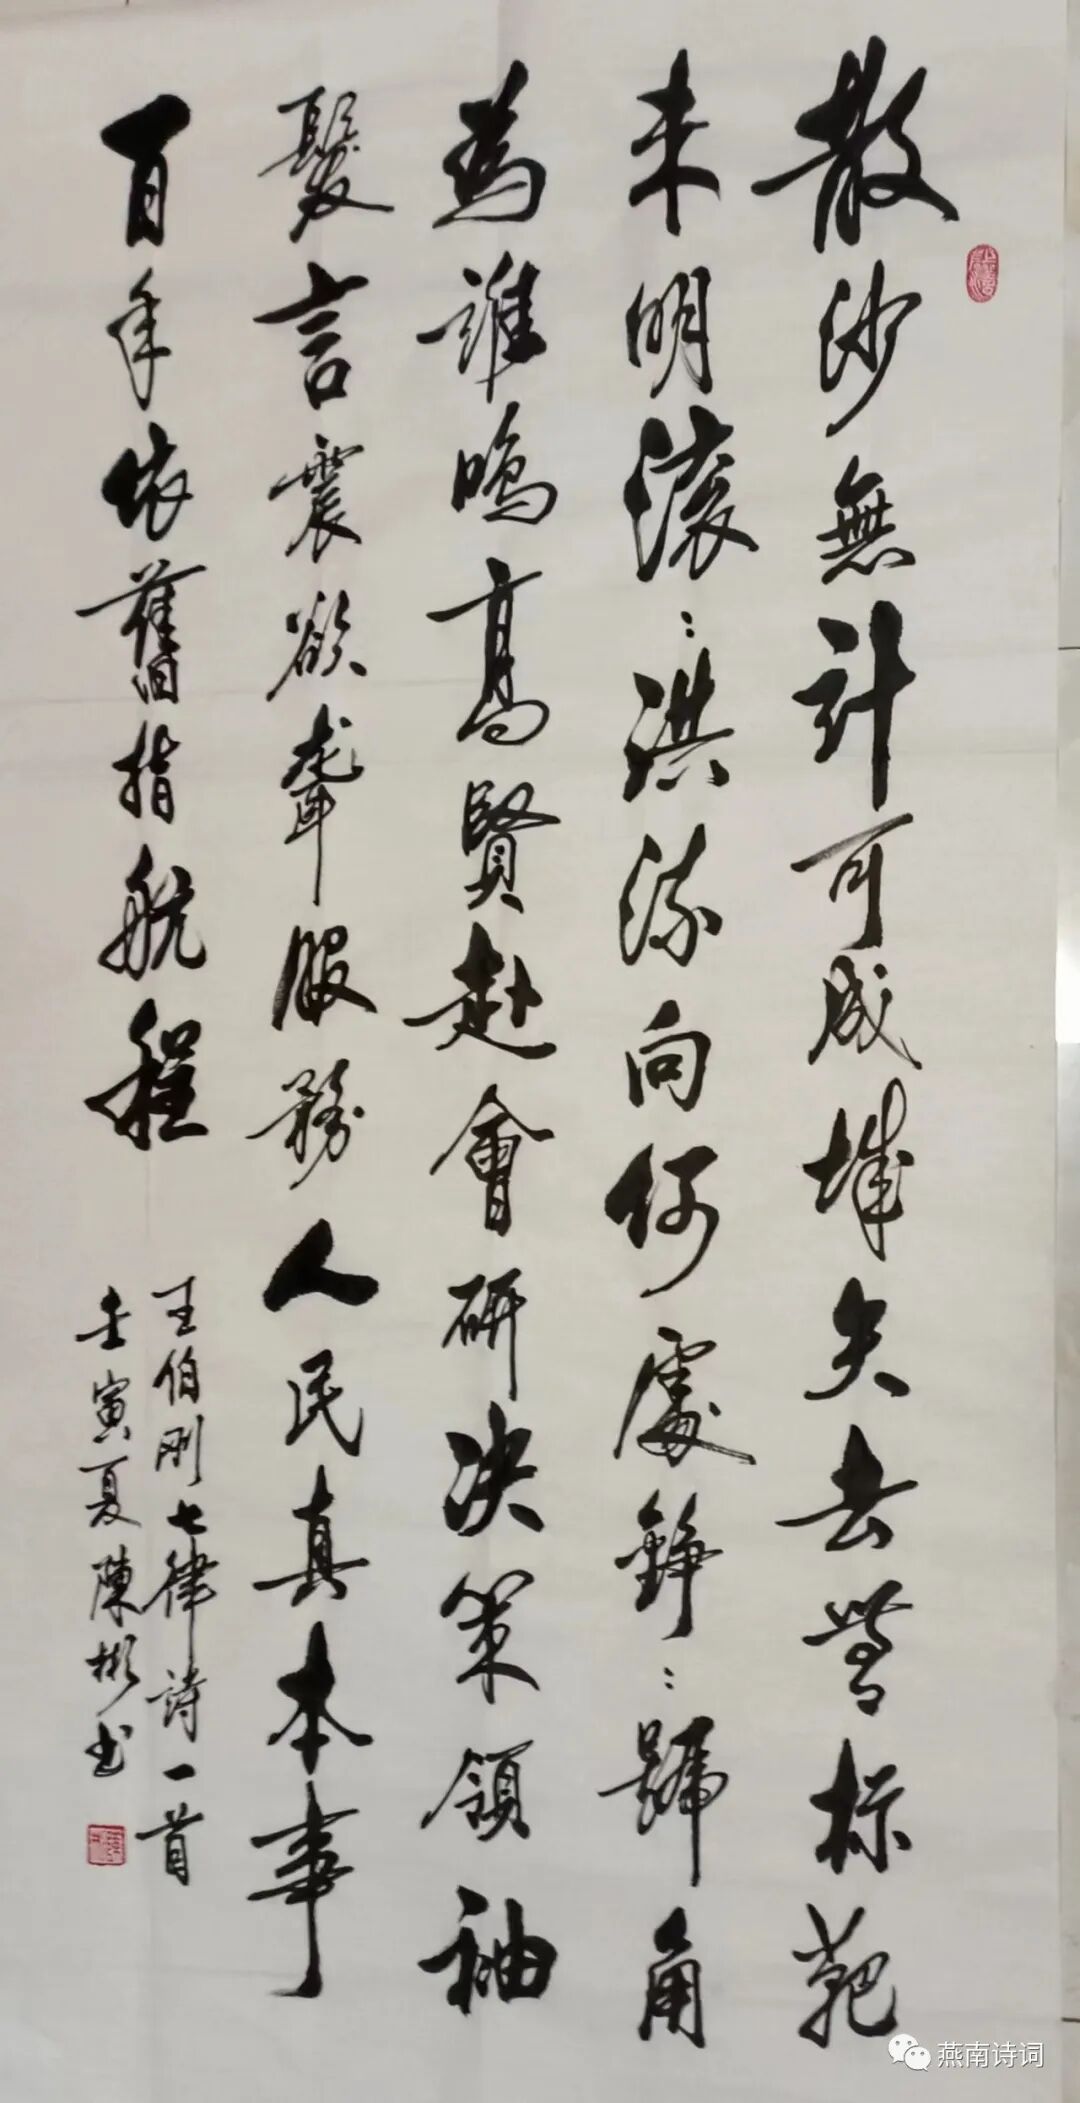 散沙無計可成城失去蒙标范
未明滚〻洪流向何處錚〻號角
為誰鳴高賢赴會研决策領袖
發言震欲聋服務人民真本事
百年依舊指航程
王伯刚七律诗一首
壬寅夏陳彬书
燕南诗词